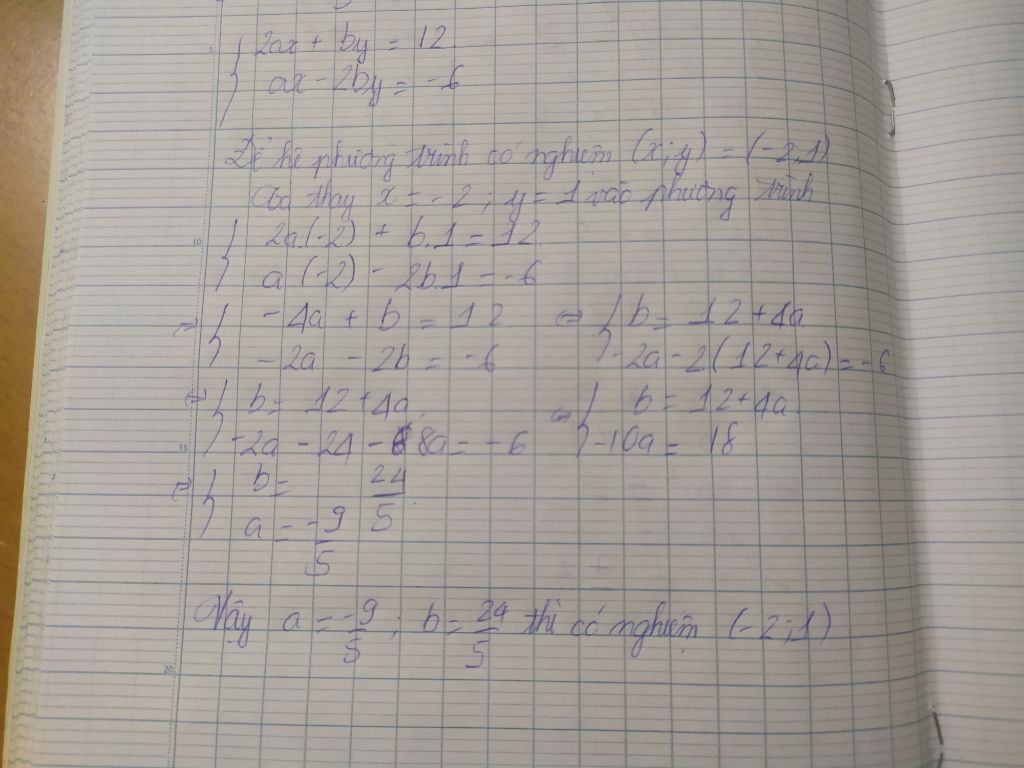 { 2ax + by = 12
ax - 2by = -6
Để hệ phương trình có nghiệm (x; y) = (-2;1)
thay x = -2 ; y = 1 vào phương trình
{ 2a.(-2) + b.1 = 12
a (-2) - 2b.1 = -6
⇔ { -4a + b = 12 ⇔ { b = 12 + 4a
-2a - 2b = -6 -2a - 2(12+4a) = -6
⇔ { b = 12 + 4a ⇔ { b = 12 + 4a
-2a - 24 - 8a = -6 -10a = 18
⇔ { b = 24/5
a = -9/5
Vậy a = -9/5 ; b = 24/5 thì có nghiệm (-2;1)